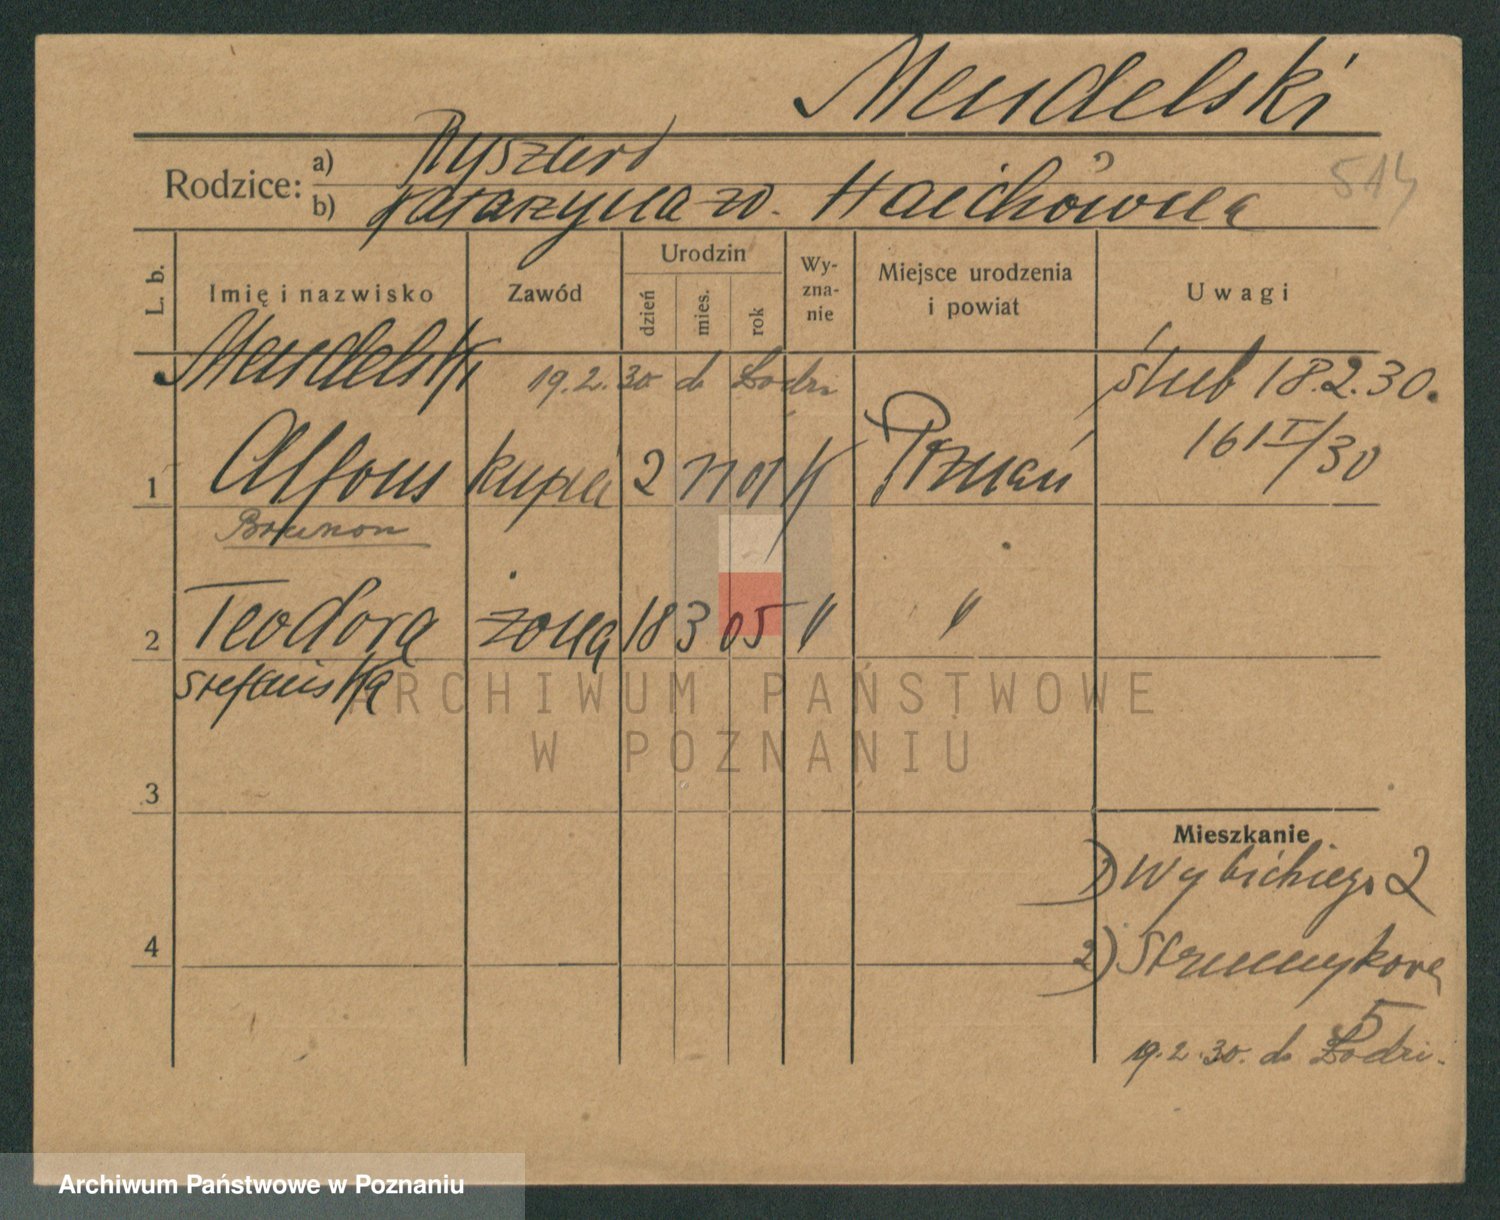 Mendelski
Rodzice: a) Ryszard
514
b) Katarzyna zd.
L. b.
Imię i nazwisko
Zawód
Urodzin
dzień
mies.
rok
Wy-
zna-
nie
Miejsce urodzenia
i powiat
Uwagi
Mendelski
19.2.30 do Łodzi
ślub 18.2.30.
161 I/30
1 Alfons kupiec 2 11 01 K Poznań
Brunon
2 Teodora żona 18 3 05 " "
Stefańska
ARCHIWUM PAŃSTWOWE
W POZNANIU
3
Mieszkanie
1) Wybickiego 2
4
2)
5
19.2.30. do Łodzi.
Archiwum Państwowe w Poznaniu